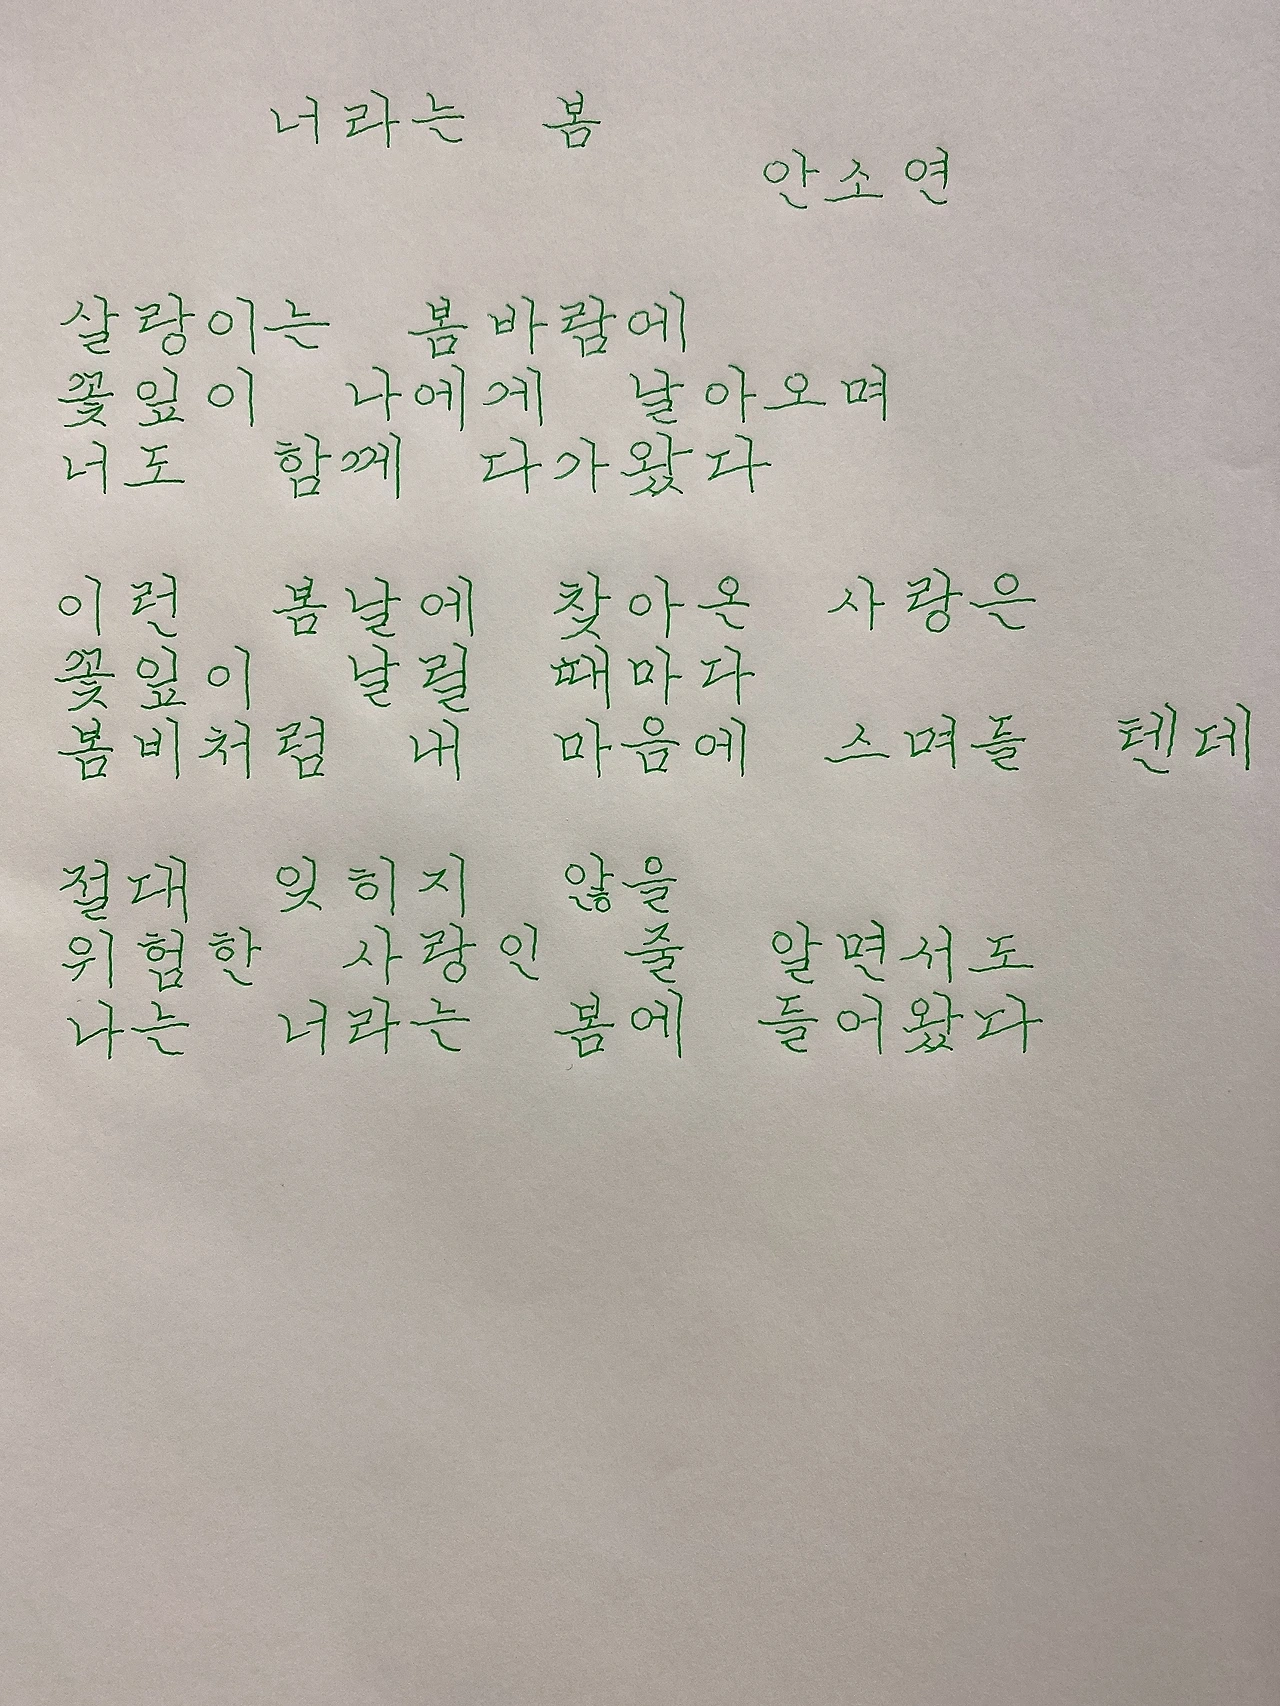 너라는 봄
안소연
살랑이는 봄바람에
꽃잎이 나에게 날아오며
너도 함께 다가왔다
이런 봄날에 찾아온 사랑은
꽃잎이 날릴 때마다
봄비처럼 내 마음에 스며들 텐데
절대 잊히지 않을
위험한 사랑인 줄 알면서도
나는 너라는 봄에 들어왔다